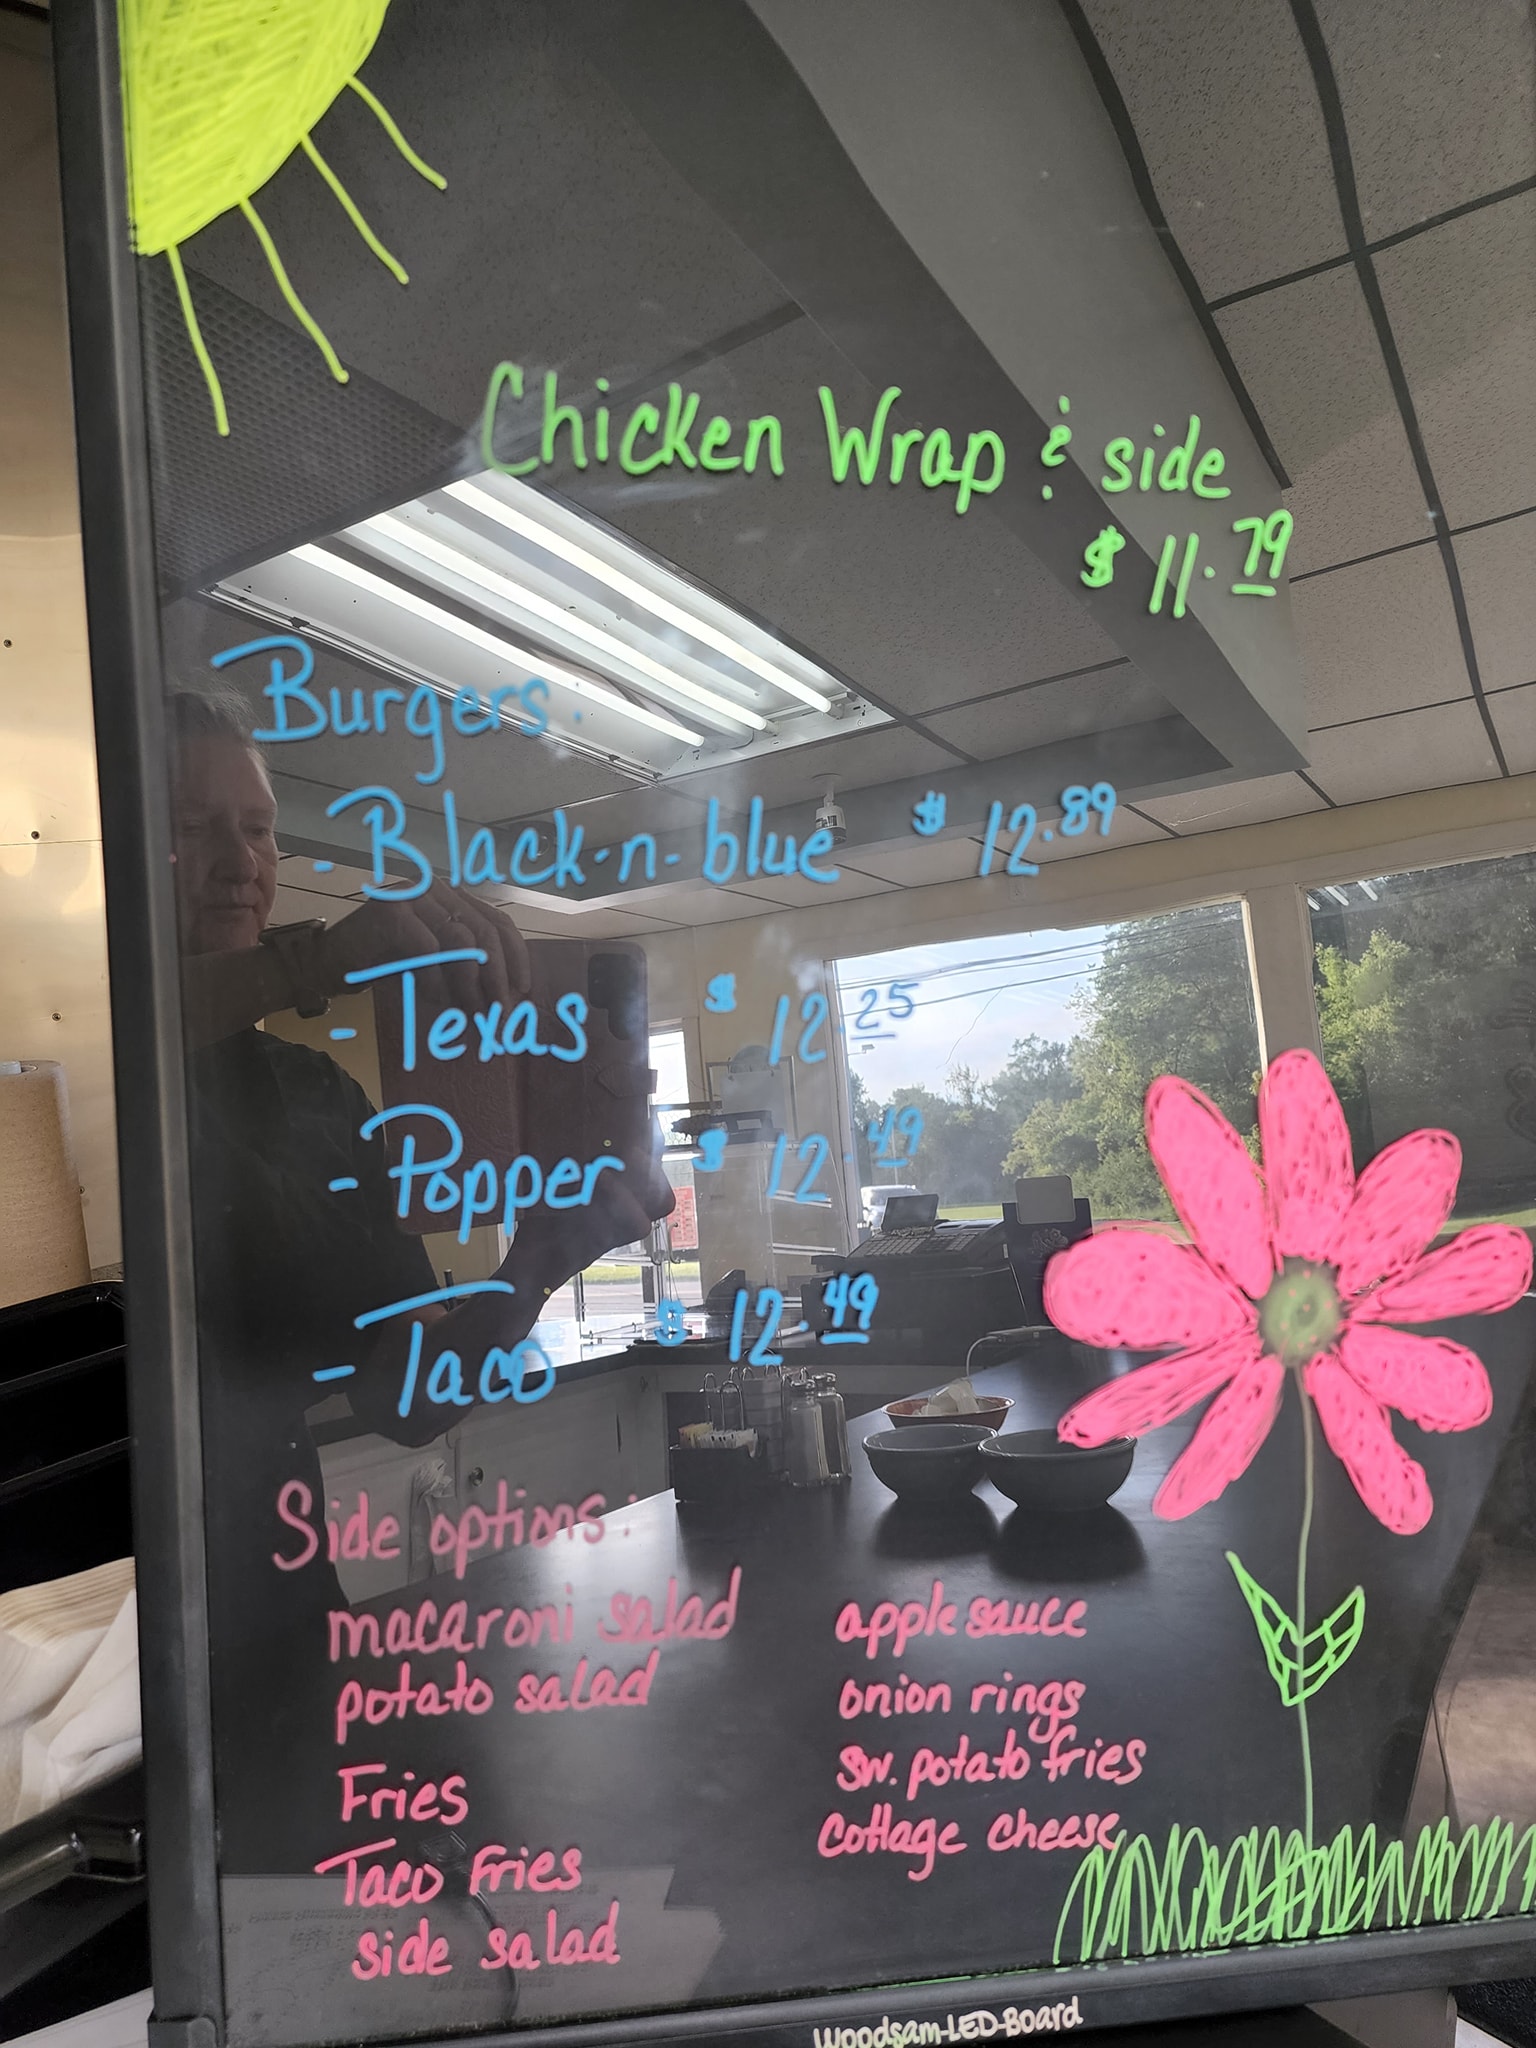 Chicken Wrap & side
$ 11.79
Burgers:
- Black-n-blue $ 12.89
- Texas $ 12.25
- Popper $ 12.49
- Taco $ 12.49
Side options:
macaroni salad
potato salad
Fries
Taco Fries
side salad
applesauce
onion rings
sw. potato fries
cottage cheese
Woodsam-LED-Board